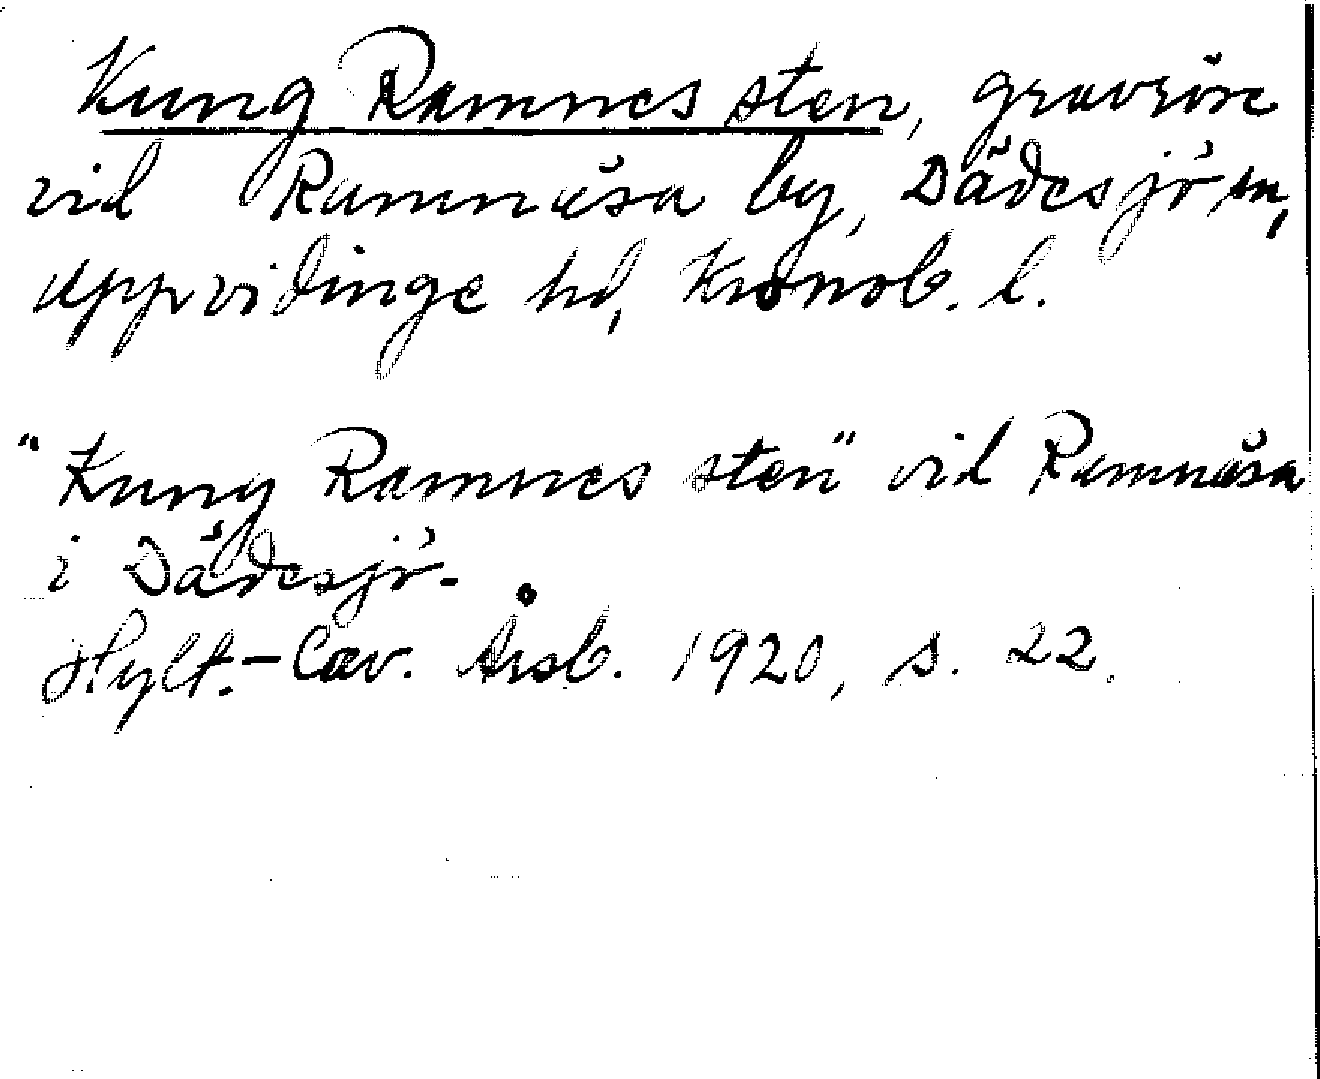 Kung Ramnes sten, gravröse
vid Ramnåsa by, Dädesjö sn,
Uppvidinge hd, Kronob. l.
"Kung Ramnes sten" vid Ramnåsa
i Dädesjö.
Hylt.-Cav. Årsb. 1920, s. 22.